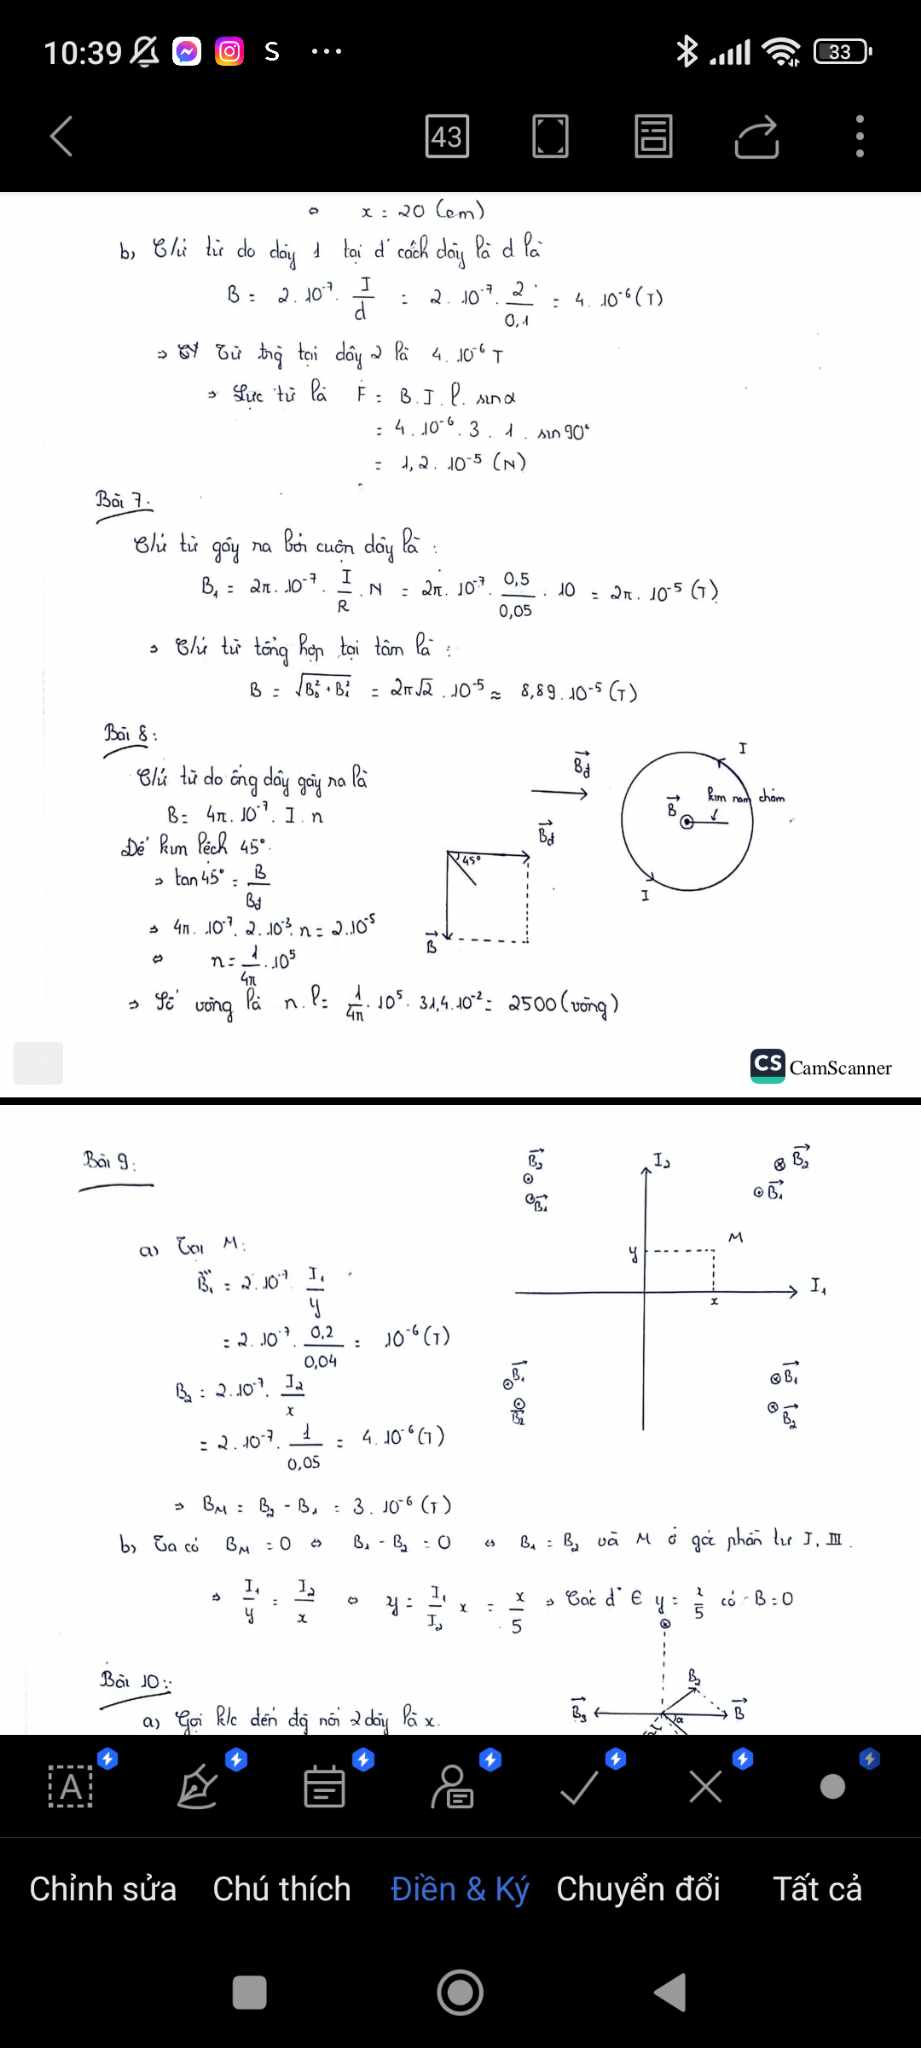 10:39 S ...
33
43
⇔ x = 20 (cm)
b, Cứ từ do dây 1 tại đ' cách dây là d là
B = 2.10⁻⁷. I/d = 2.10⁻⁷. 2/0,1 = 4.10⁻⁶ (T)
⇒ Từ trg tại dây 2 là 4.10⁻⁶ T
⇒ Lực từ là F = B.I.l. sinα
= 4.10⁻⁶. 3 . 1 . sin90°
= 1,2.10⁻⁵ (N)
Bài 7.
C/ứ từ gây ra bởi cuộn dây là :
B₁ = 2π.10⁻⁷. I/R . N = 2π.10⁻⁷. 0,5/0,05 . 10 = 2π.10⁻⁵ (T)
⇒ C/ứ từ tổng hợp tại tâm là :
B = √(B₀² + B₁²) = 2π√2.10⁻⁵ ≈ 8,89.10⁻⁵ (T)
Bài 8:
C/ứ từ do ống dây gây ra là
B = 4π.10⁻⁷. I. n
Để kim lệch 45°.
⇒ tan45° = B/Bđ
⇒ 4π.10⁻⁷. 2.10⁻³. n = 2.10⁻⁵
⇔ n = 1/4π .10⁵
⇒ Số vòng là n.l = 1/4π . 10⁵. 31,4.10⁻² = 2500 (vòng)
Bđ
Bđ
45°
B
I
B
kim nam châm
I
CS CamScanner
Bài 9:
a) Tại M:
B₁ = 2.10⁻⁷ I₁/y
= 2.10⁻⁷. 0,2/0,04 = 10⁻⁶ (T)
B₂ = 2.10⁻⁷. I₂/x
= 2.10⁻⁷. 1/0,05 = 4.10⁻⁶ (T)
⇒ B_M = B₂ - B₁ = 3.10⁻⁶ (T)
B₂
B₁
I₂
B₂
B₁
y
M
x
I₁
B₁
B₂
B₁
B₂
b, Ta có B_M = 0 ⇔ B₁ - B₂ = 0 ⇔ B₁ = B₂ và M ở góc phần tư I, III.
⇒ I₁/y = I₂/x ⇔ y = I₁/I₂ x = x/5 ⇒ Các đ' ∈ y = x/5 có B = 0
Bài 10:
a) Gọi k/c đến đg nối 2 dây là x.
B₃
B₂
B
α
Chỉnh sửa Chú thích Điền & Ký Chuyển đổi Tất cả